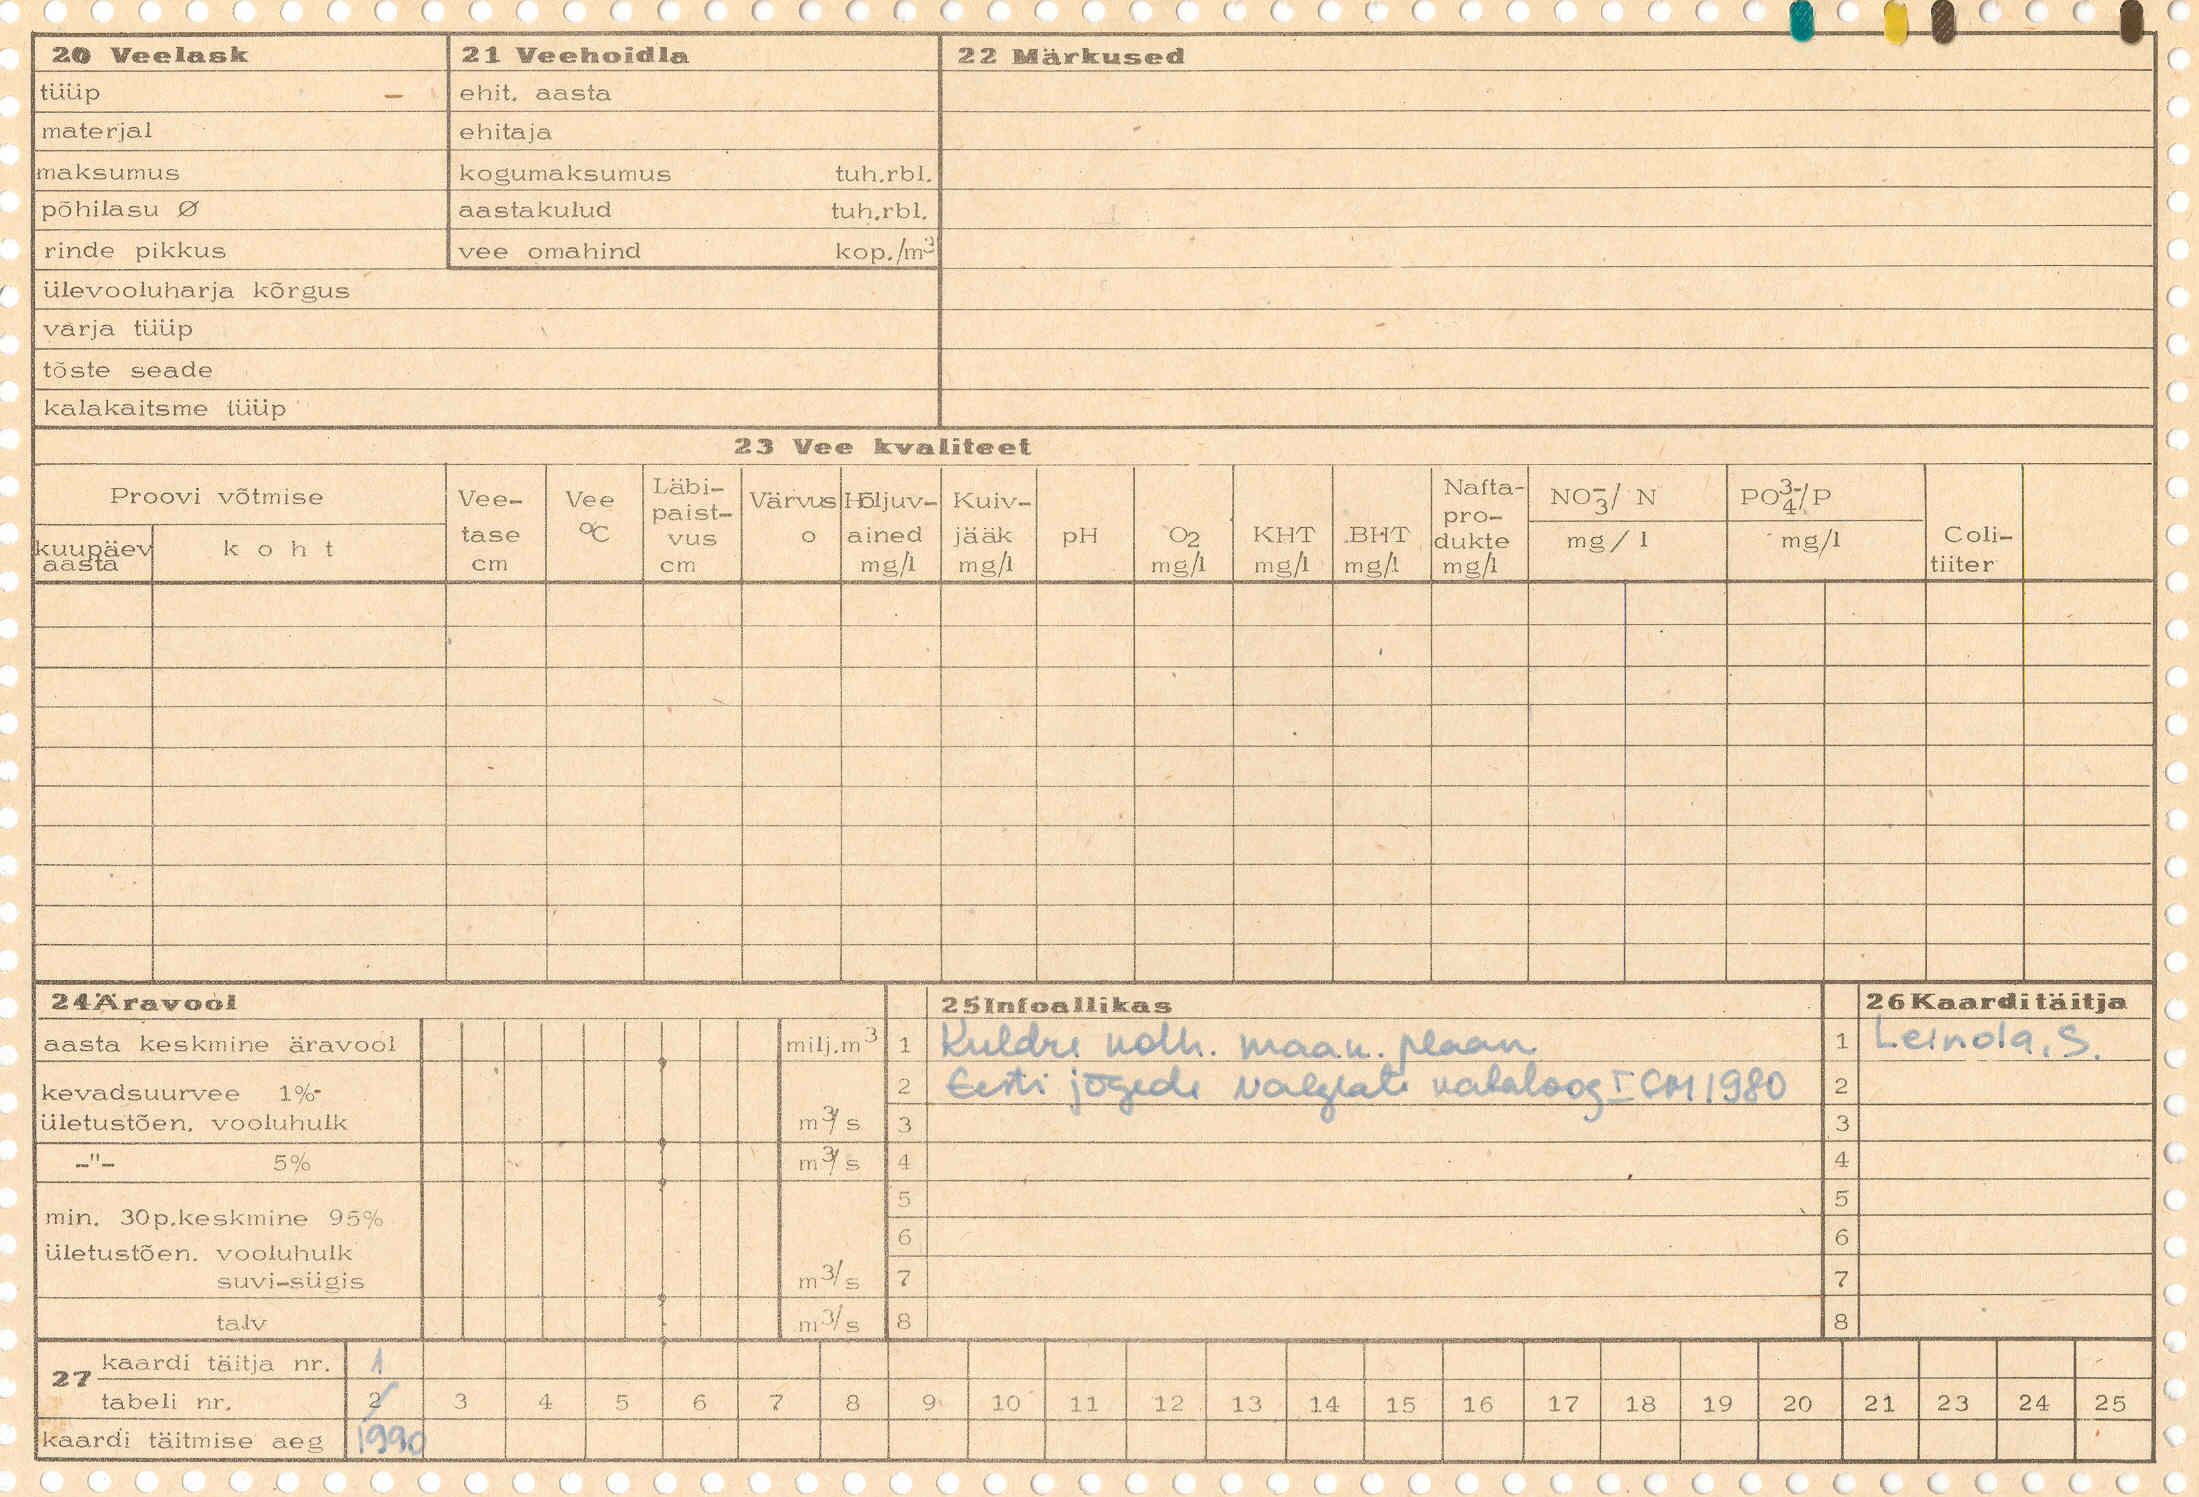 20 Veelask
tüüp
materjal
maksumus
põhilasu Ø
rinde pikkus
ülevooluharja kõrgus
varja tüüp
tõste seade
kalakaitsme tüüp
21 Veehoidla
ehit. aasta
ehitaja
kogumaksumus tuh.rbl.
aastakulud tuh.rbl.
vee omahind kop./m³
22 Märkused
23 Vee kvaliteet
Proovi võtmise
kuupäev aasta
koht
Vee-tase cm
Vee °C
Läbi-paist-vus cm
Värvus o
Hõljuv-ained mg/l
Kuiv-jääk mg/l
pH
O₂ mg/l
KHT mg/l
BHT mg/l
Nafta-pro-dukte mg/l
NO₃⁻/N mg/l
PO₄³⁻/P mg/l
Coli-tiiter
24 Äravool
aasta keskmine äravool milj.m³
kevadsuurvee 1%-
ületustõen. vooluhulk m³/s
-"- 5% m³/s
min. 30p.keskmine 95%
ületustõen. vooluhulk
suvi-sügis m³/s
talv m³/s
25 Infoallikas
1 Kuldre kolh. maak. plaan
2 Eesti jõgede valglate kataloog I 1980
3
4
5
6
7
8
26 Kaarditäitja
1 Leinola, S.
2
3
4
5
6
7
8
27 kaardi täitja nr. 1
tabeli nr. 2 3 4 5 6 7 8 9 10 11 12 13 14 15 16 17 18 19 20 21 23 24 25
kaardi täitmise aeg 1990